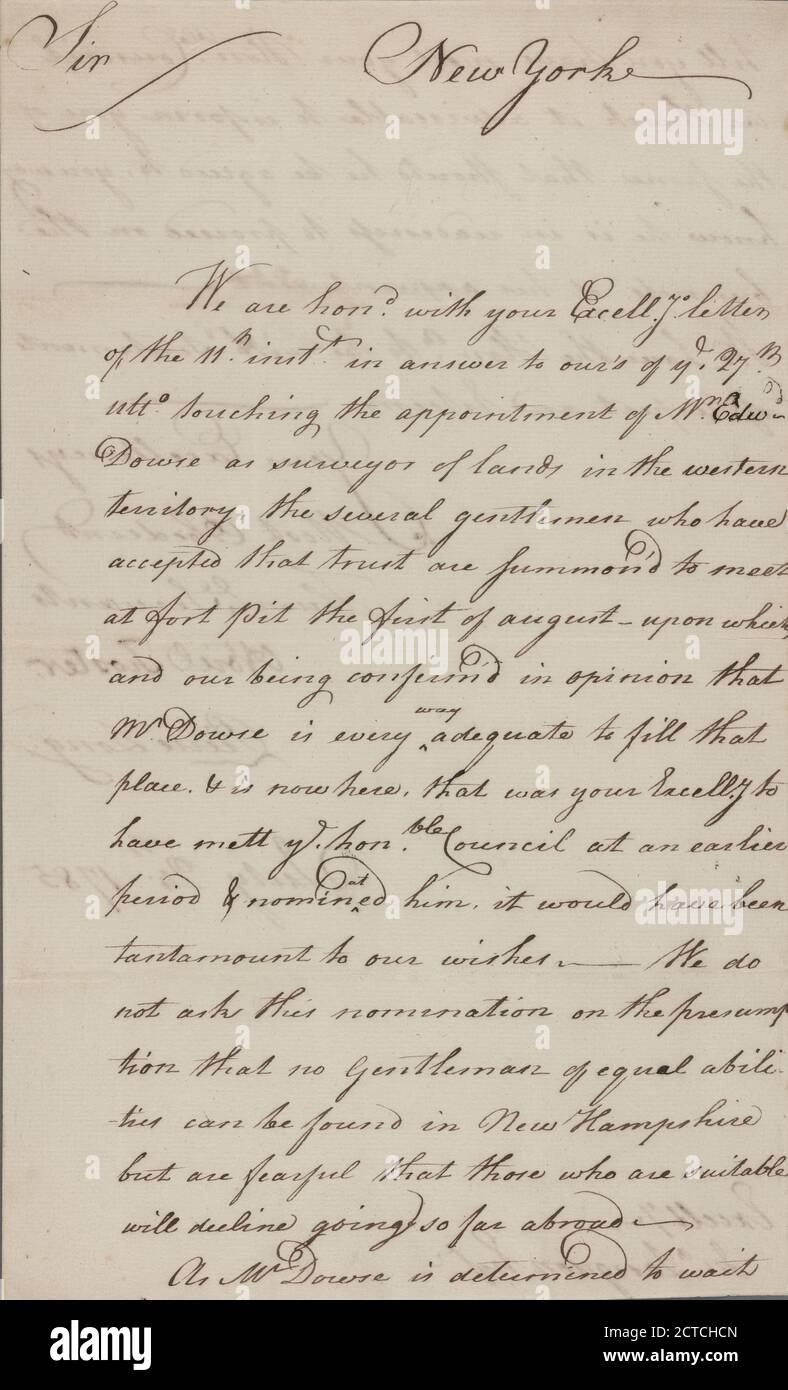 Sir New Yorke
We are hon.d with your Excell.ys letter
of the 11.th inst.t in answer to our's of y.e 27.th
ult.o touching the appointment of Mr. Edw.d
Dowse as surveyor of lands in the western
territory, the several gentlemen who have
accepted that trust are summon'd to meet
at fort Pit the first of august - upon which,
and our being confirm'd in opinion that
Mr Dowse is every way adequate to fill that
place. & is now here, that was your Excell.y to
have mett y.e hon.ble Council at an earlier
period & nominated him, it would have been
tantamount to our wishes — We do
not ask this nomination on the presump
tion that no Gentleman of equal abili-
-ties can be found in New Hampshire
but are fearful that those who are suitable
will decline going so far abroad —
As Mr Dowse is determined to wait
alamy
Image ID: 2CTCHCN
www.alamy.com